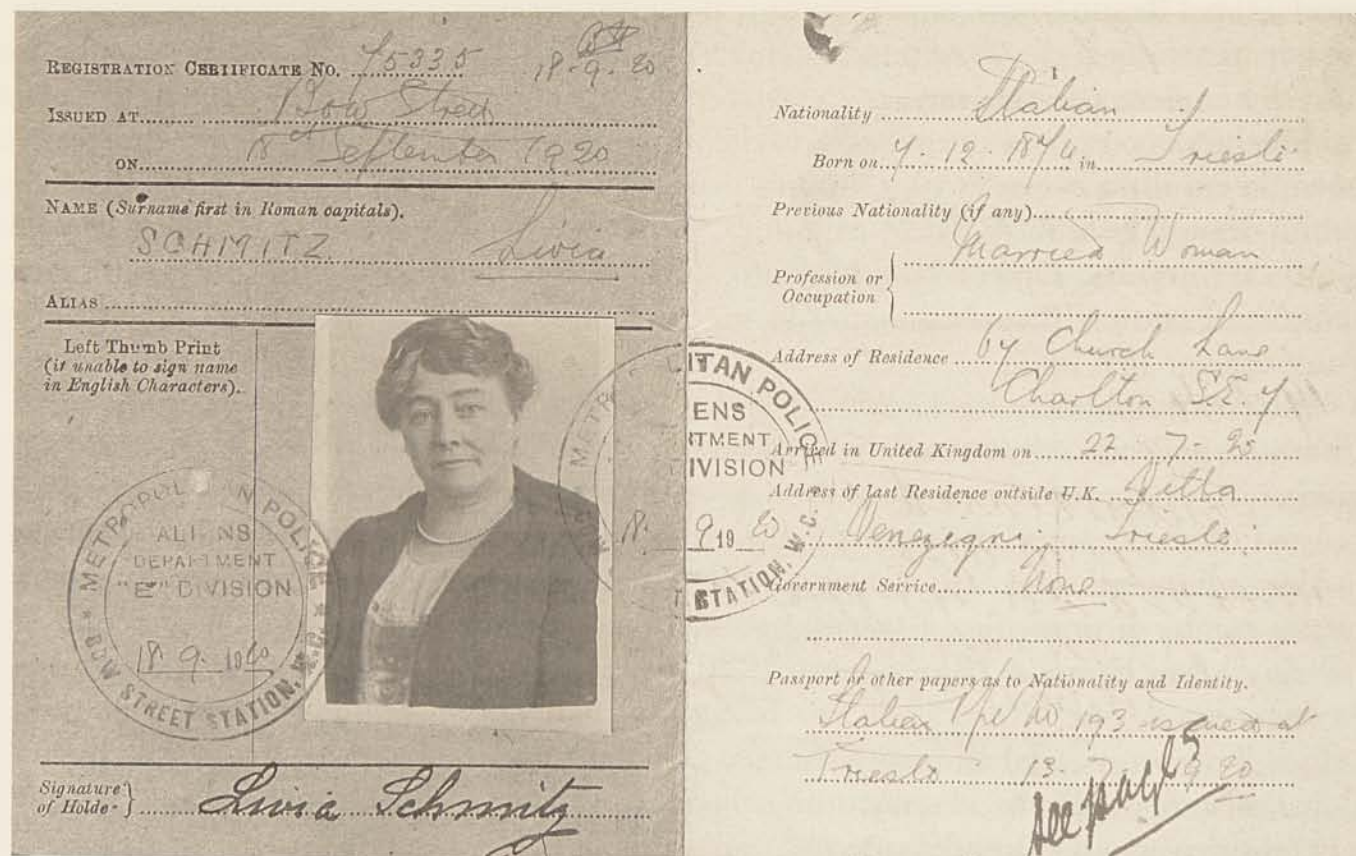 REGISTRATION CERTIFICATE No. 75335 18-9-20
ISSUED AT Bow Street
ON 18th September 1920
NAME (Surname first in Roman capitals).
SCHMITZ Livia
ALIAS
Left Thumb Print
(if unable to sign name
in English Characters).
METROPOLITAN POLICE
ALIENS
DEPARTMENT
"E" DIVISION
18. 9. 1920
BOW STREET STATION, W.C.
Signature
of Holder
Livia Schmitz
1
Nationality Italian
Born on 7.12.1874 in Trieste
Previous Nationality (if any)
Profession or
Occupation
Married Woman
Address of Residence 67 Church Lane
Charlton S.E. 7
Arrived in United Kingdom on 22-7-20
Address of last Residence outside U.K. Villa
Veneziani, Trieste
Government Service None
Passport or other papers as to Nationality and Identity.
Italian ppt no 193 issued at
Trieste 13-7-1920
see page 5
METROPOLITAN POLICE
ALIENS
DEPARTMENT
DIVISION
18. 9 1920
STATION, W.C.